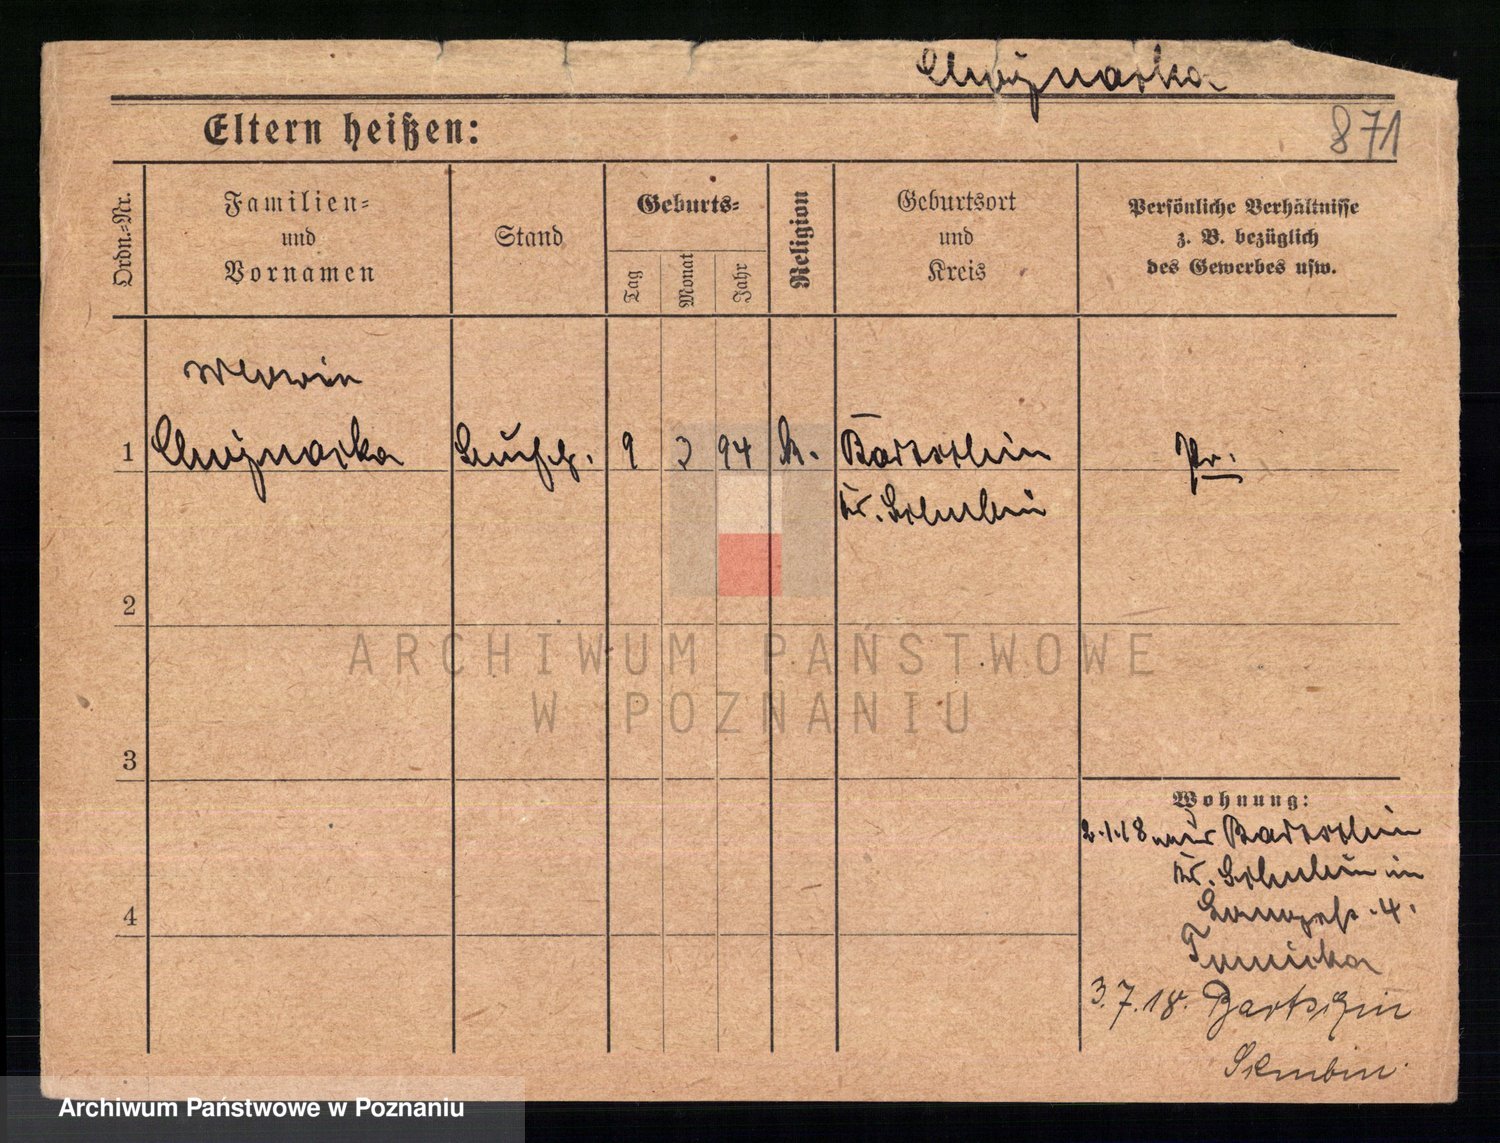 Chojnacka
Eltern heißen:
871
Ordn.=Nr.
Familien=
und
Vornamen
Stand
Geburts=
Tag
Monat
Jahr
Religion
Geburtsort
und
Kreis
Persönliche Verhältnisse
z. B. bezüglich
des Gewerbes usw.
1
Chojnacka
9
3
94
k.
Bartschin
Kr. Schubin
Pr.
2
3
4
Wohnung:
2.1.18 aus Bartschin
Kr. Schubin in
4.
Tomicka
3.7.18. Bartschin
Schubin.
ARCHIWUM PAŃSTWOWE
W POZNANIU
Archiwum Państwowe w Poznaniu